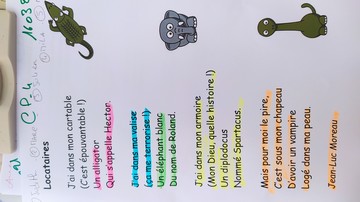 Locataires
J'ai dans mon cartable
(C'est épouvantable !)
Un alligator
Qui s'appelle Hector.
J'ai dans ma valise
(ça me terrorise !)
Un éléphant blanc
Du nom de Roland.
J'ai dans mon armoire
(Mon Dieu, quelle histoire !)
Un diplodocus
Nommé Spartacus.
Mais pour moi le pire,
C'est sous mon chapeau
D'avoir un vampire
Logé dans ma peau.
Jean-Luc Moreau